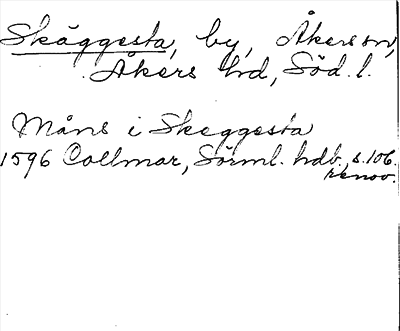 Skäggesta, by, Åkers sn,
Åkers hd, Söd. l.
Måns i Skeggesta
1596 Collmar, Sörml. hdb., s. 106.
renov.